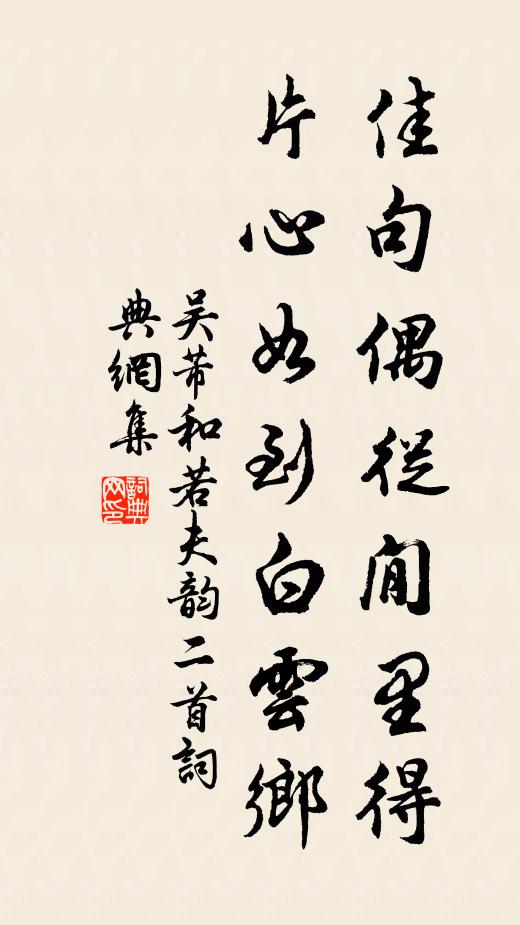 佳句偶從閒里得
片心如到白雲鄉
吳芾和若夫韵二首詞
典網集
詞典
网印